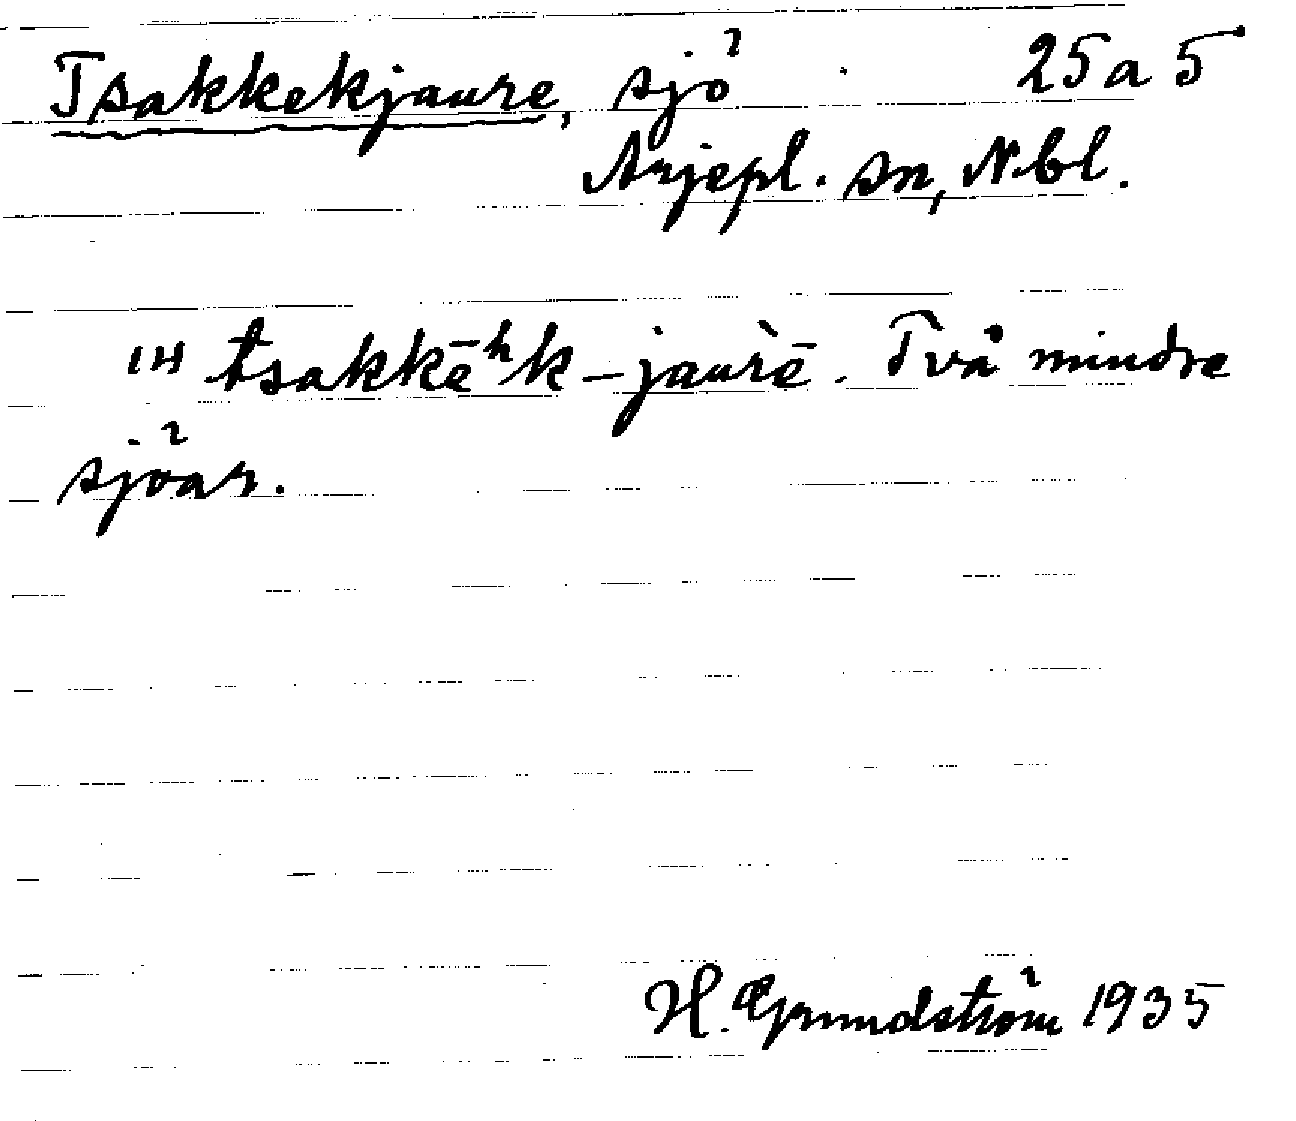 Tsakkekjaure, sjö 25a5
Arjepl. sn, Nbl.
ˈˈ tsakkēʰk-jaurē. Två mindre
sjöar.
H. Grundström 1935